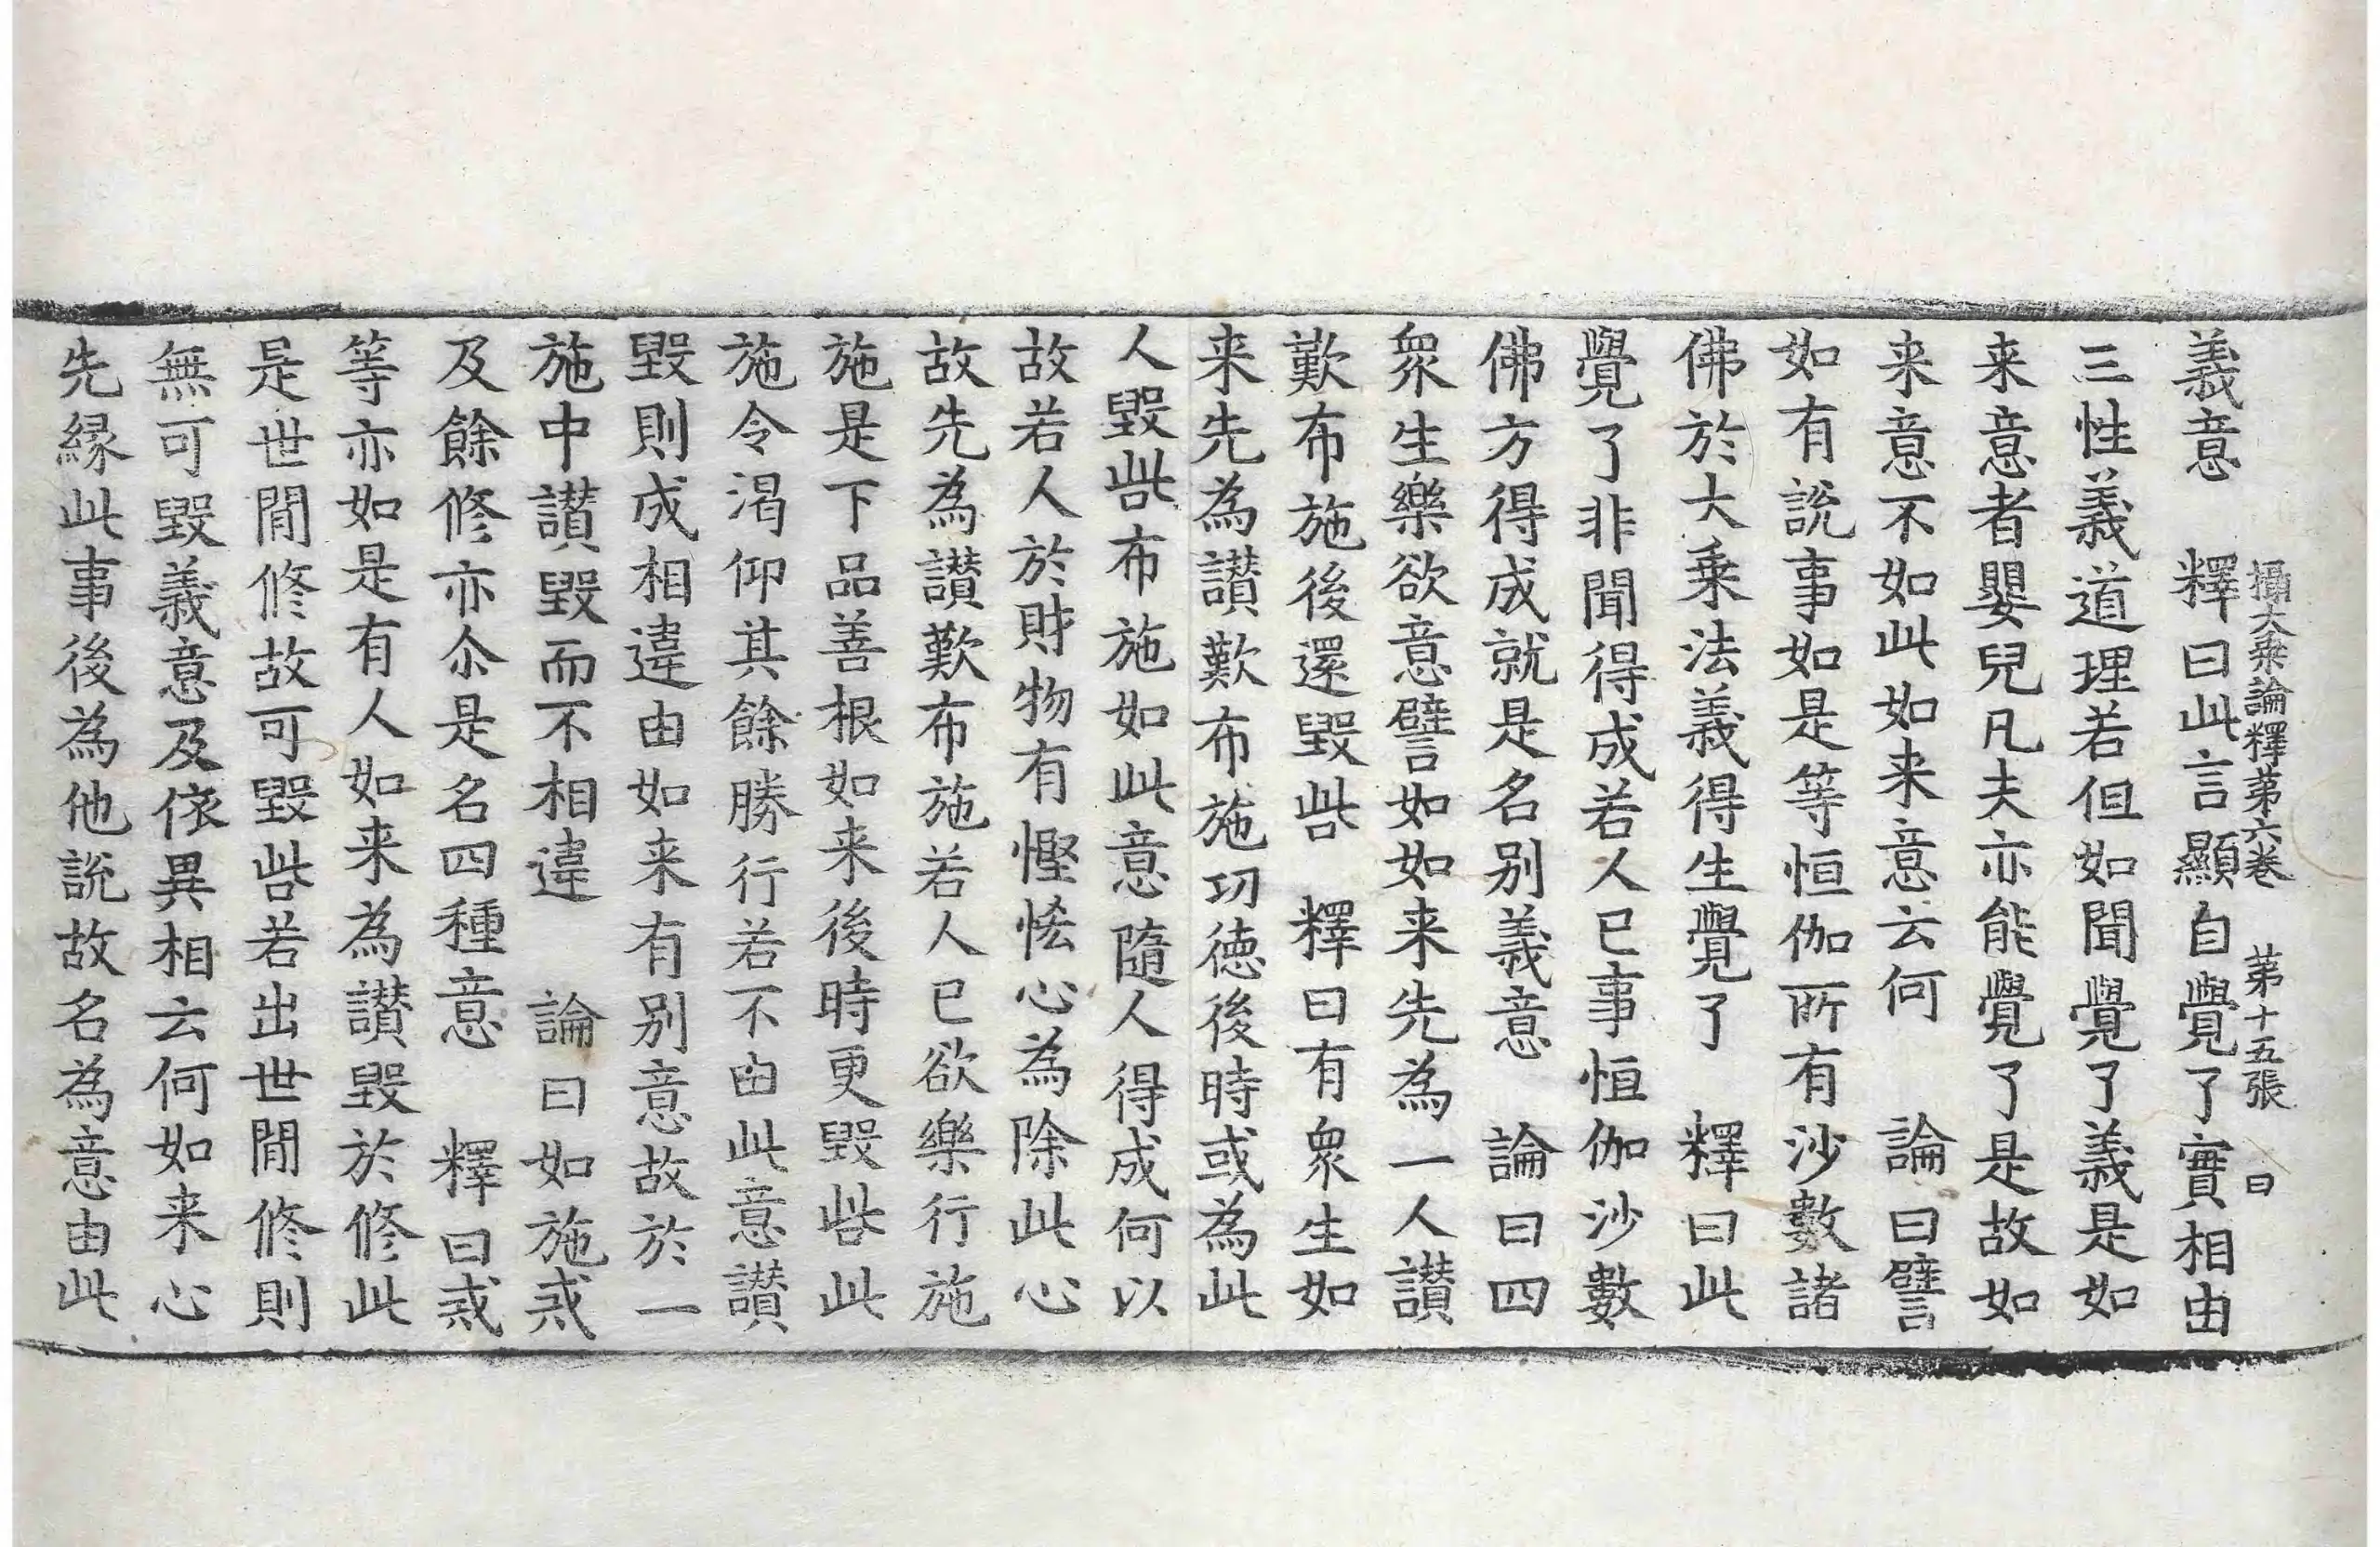 攝大乗論釋第六卷 第十五張 曰
義意 釋曰此言顯自覺了實相由
三性義道理若但如聞覺了義是如
来意者嬰兒凡夫亦能覺了是故如
来意不如此如来意云何 論曰譬
如有說事如是等恒伽所有沙數諸
佛於大乗法義得生覺了 釋曰此
覺了非聞得成若人已事恒伽沙數
佛方得成就是名别義意 論曰四
衆生樂欲意譬如如来先為一人讃
歎布施後還毀呰 釋曰有衆生如
来先為讃歎布施功徳後時或為此
人毀呰布施如此意隨人得成何以
故若人於財物有慳悋心為除此心
故先為讃歎布施若人已欲樂行施
施是下品善根如来後時更毀呰此
施令渇仰其餘勝行若不由此意讃
毀則成相違由如来有别意故於一
施中讃毀而不相違 論曰如施戒
及餘修亦尒是名四種意 釋曰戒
等亦如是有人如来為讃毀於修此
是世間修故可毀呰若出世間修則
無可毀義意及依異相云何如来心
先縁此事後為他說故名為意由此